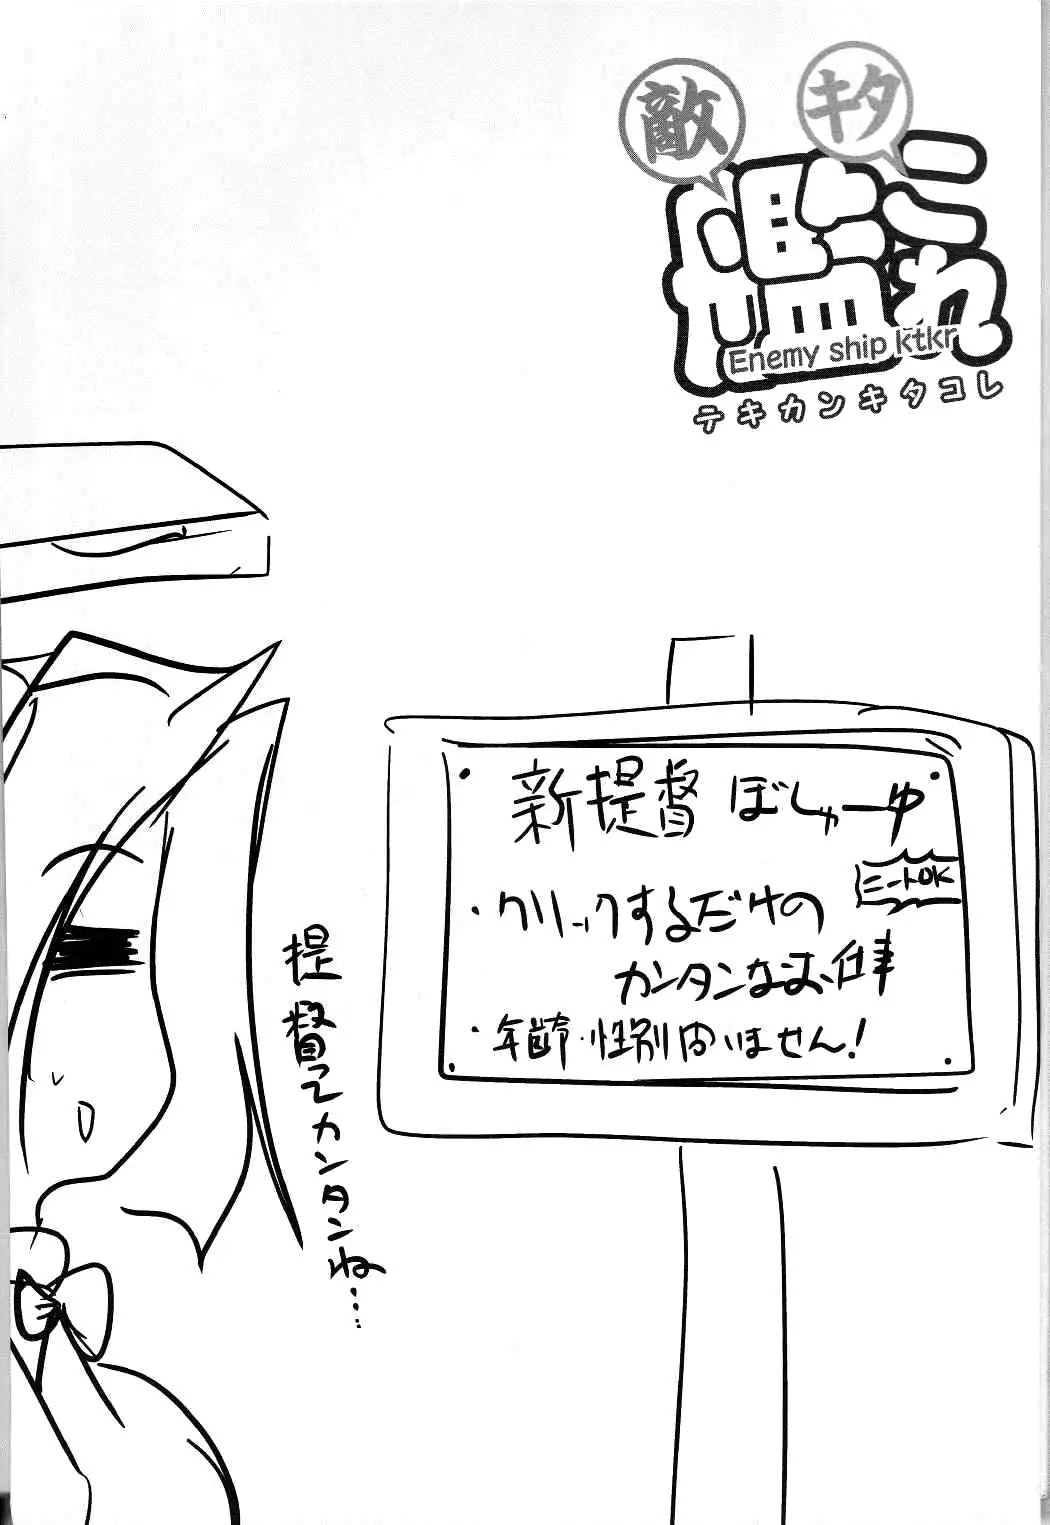 敵 キタ
艦これ
Enemy ship ktkr
テキカンキタコレ
新提督ぼしゅーゆ
ニートOK
・クリックするだけの
カンタンなお仕事
・年齢・性別問いません!
提督ってカンタンね…